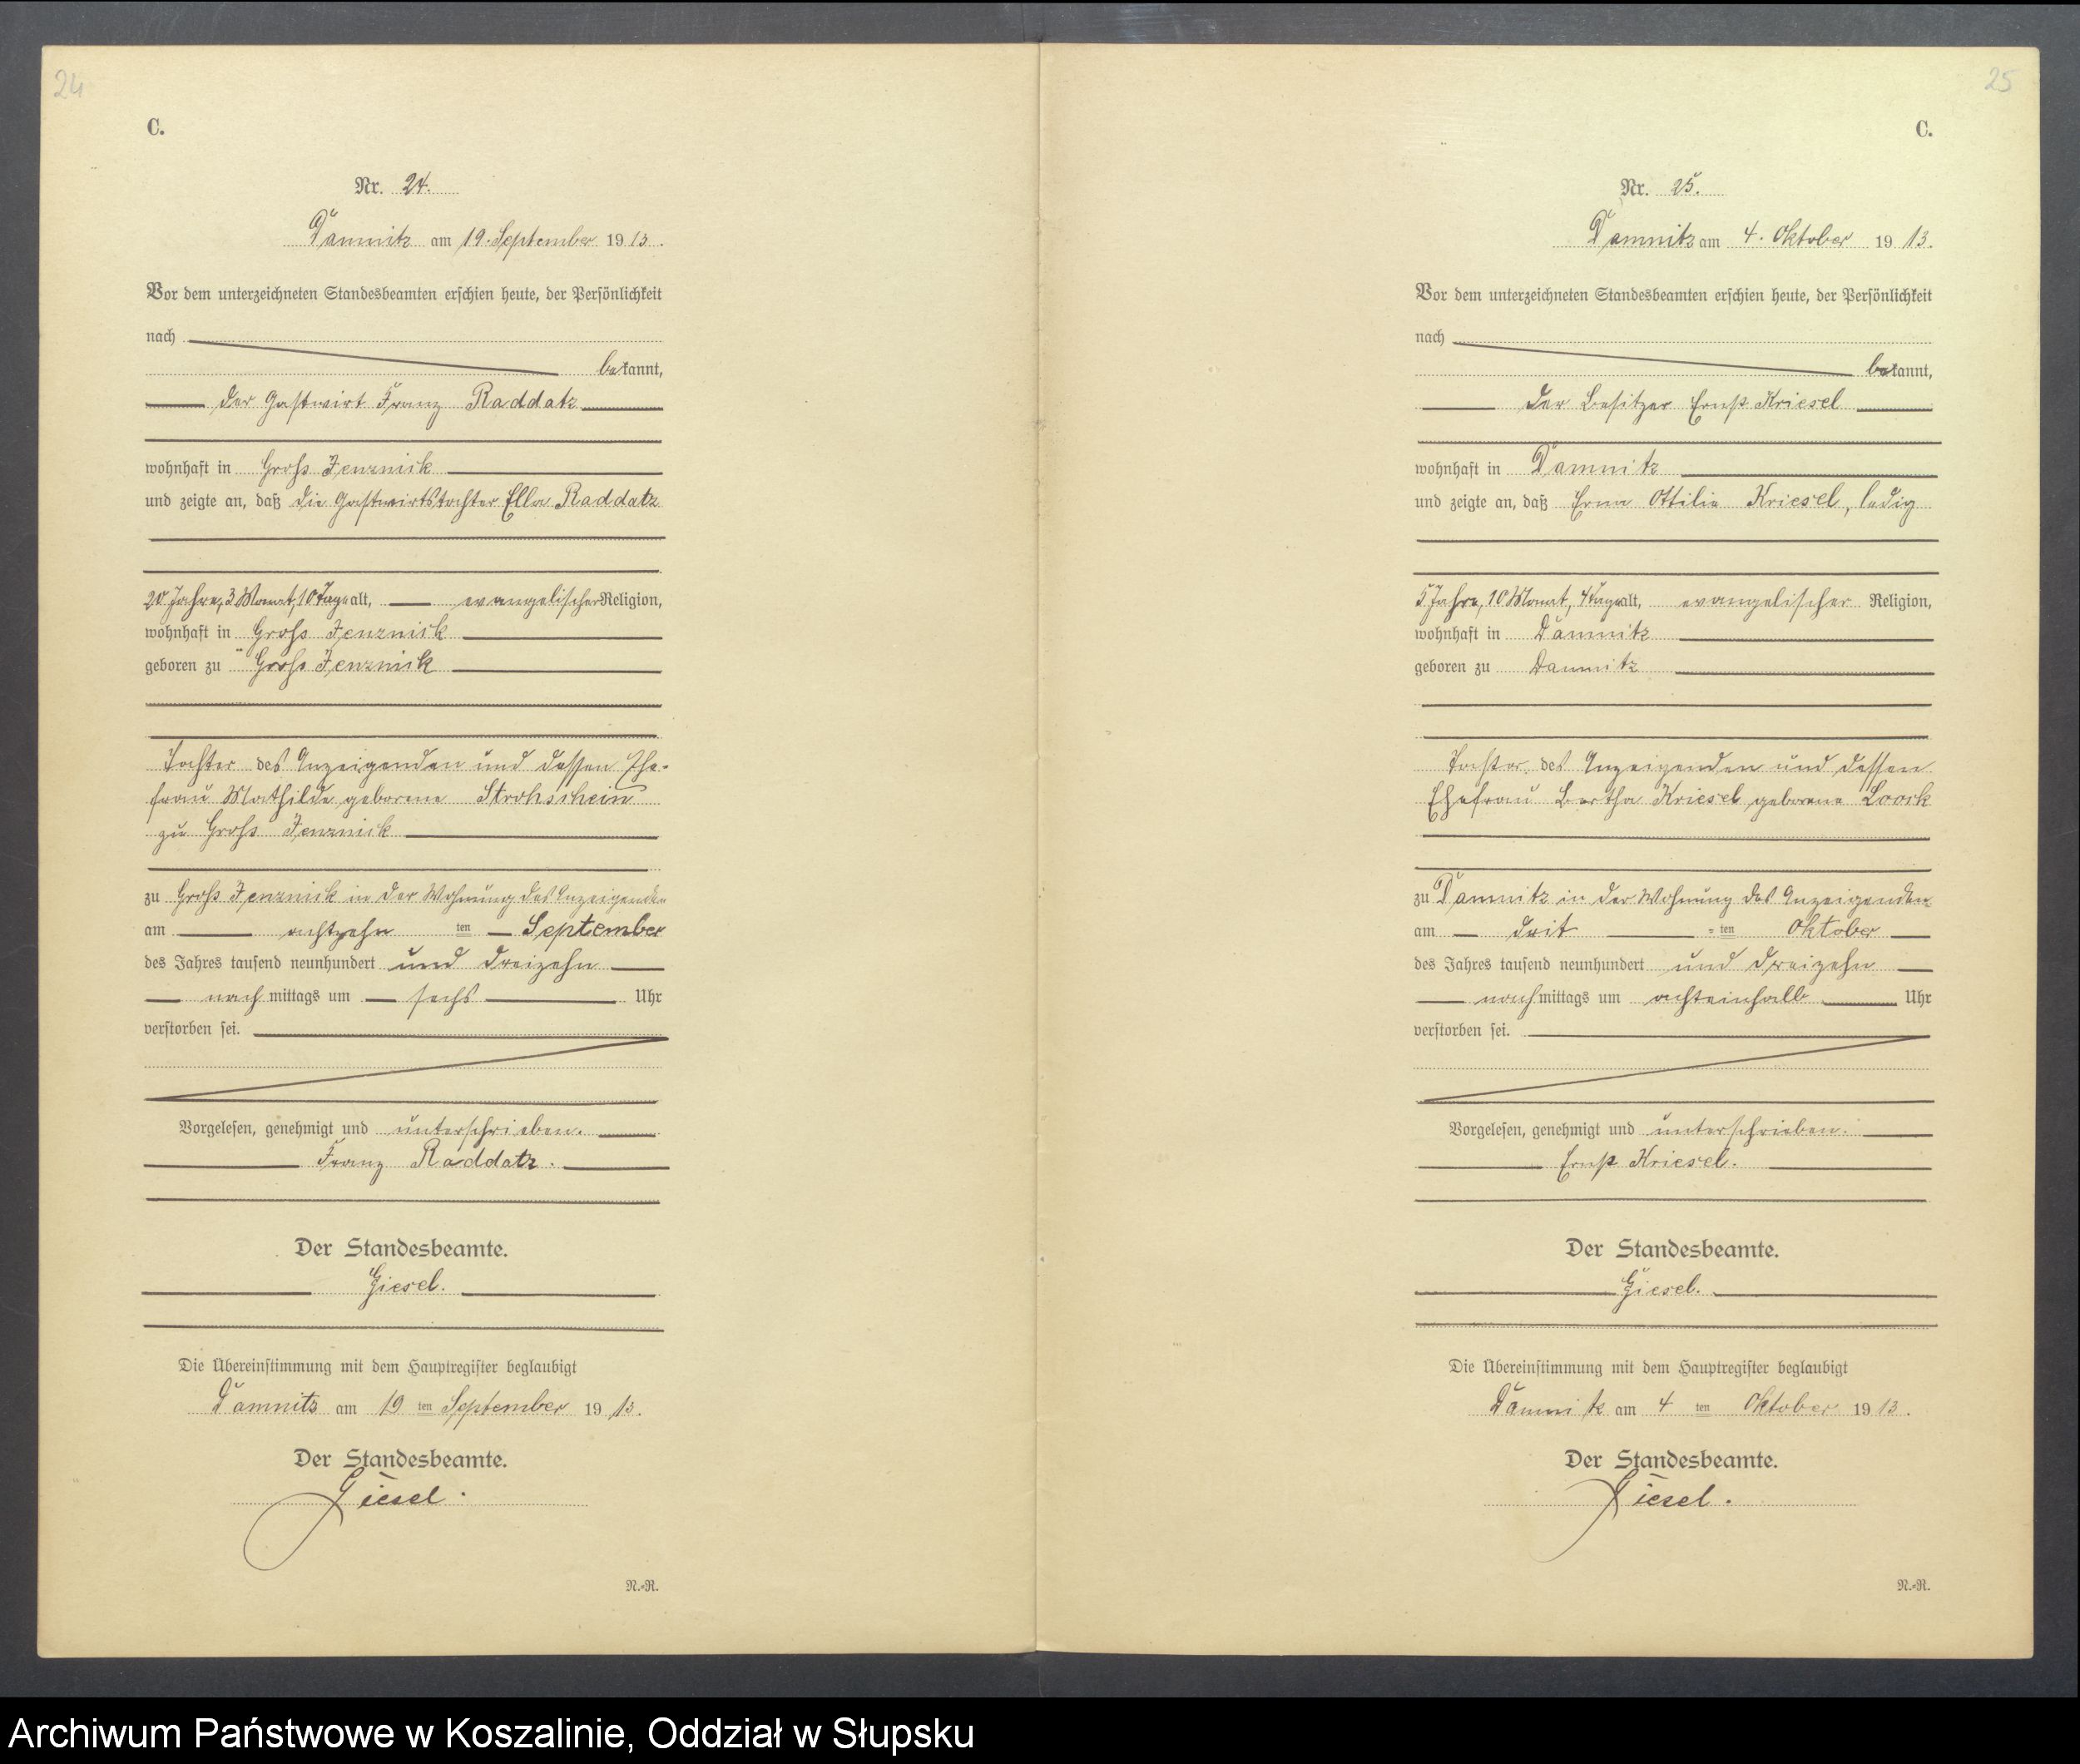 24
C.
Nr. 24.
Damnitz am 19. September 1913.
Vor dem unterzeichneten Standesbeamten erschien heute, der Persönlichkeit
nach
bekannt,
der Gastwirt Franz Raddatz
wohnhaft in Groß Jenznick
und zeigte an, daß die Gastwirtstochter Ella Raddatz
20 Jahre, 3 Monat, 10 Tage alt, evangelischer Religion,
wohnhaft in Groß Jenznick
geboren zu Groß Jenznick
Tochter des Anzeigenden und dessen Ehe-
frau Mathilde geborene Strohschein
zu Groß Jenznick
zu Groß Jenznick in der Wohnung des Anzeigenden
am achtzehn ten September
des Jahres tausend neunhundert und dreizehn
nachmittags um sechs Uhr
verstorben sei.
Vorgelesen, genehmigt und unterschrieben.
Franz Raddatz.
Der Standesbeamte.
Giesel.
Die Übereinstimmung mit dem Hauptregister beglaubigt
Damnitz am 19 ten September 1913.
Der Standesbeamte.
Giesel.
N.-R.
25
C.
Nr. 25.
Damnitz am 4. Oktober 1913.
Vor dem unterzeichneten Standesbeamten erschien heute, der Persönlichkeit
nach
bekannt,
der Besitzer Ernst Kriesel
wohnhaft in Damnitz
und zeigte an, daß Erna Ottilie Kriesel, ledig
5 Jahre, 10 Monat, 4 Tage alt, evangelischer Religion,
wohnhaft in Damnitz
geboren zu Damnitz
Tochter des Anzeigenden und dessen
Ehefrau Bertha Kriesel geborene Loock
zu Damnitz in der Wohnung des Anzeigenden
am drit ten Oktober
des Jahres tausend neunhundert und dreizehn
nachmittags um achteinhalb Uhr
verstorben sei.
Vorgelesen, genehmigt und unterschrieben.
Ernst Kriesel.
Der Standesbeamte.
Giesel.
Die Übereinstimmung mit dem Hauptregister beglaubigt
Damnitz am 4 ten Oktober 1913.
Der Standesbeamte.
Giesel.
N.-R.
Archiwum Państwowe w Koszalinie, Oddział w Słupsku